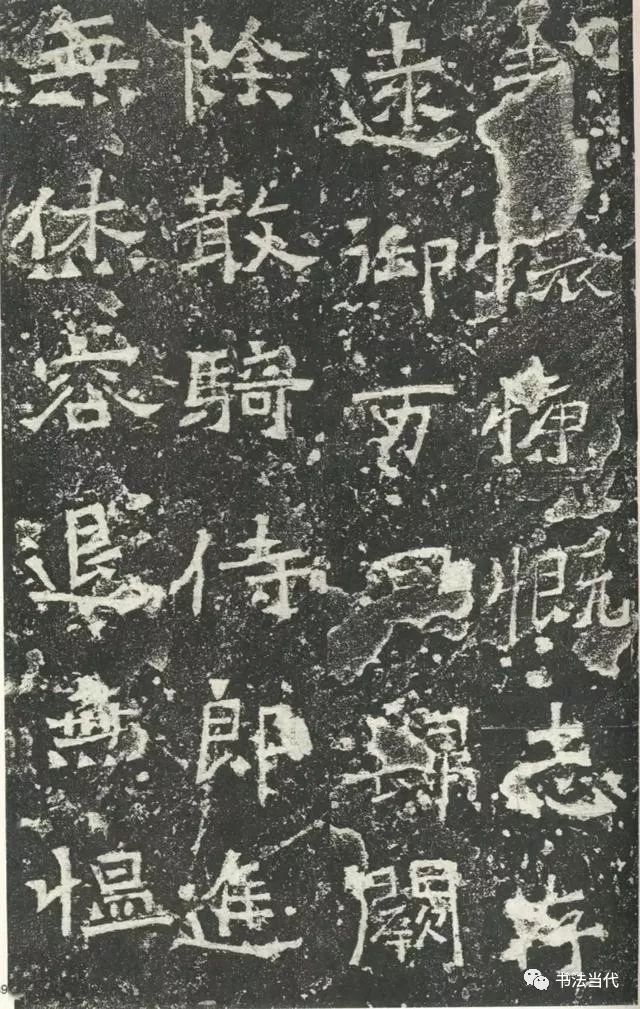 懷慷慨志存
遠御万歸闕
除散騎侍郎進
無休容退無愠
书法当代